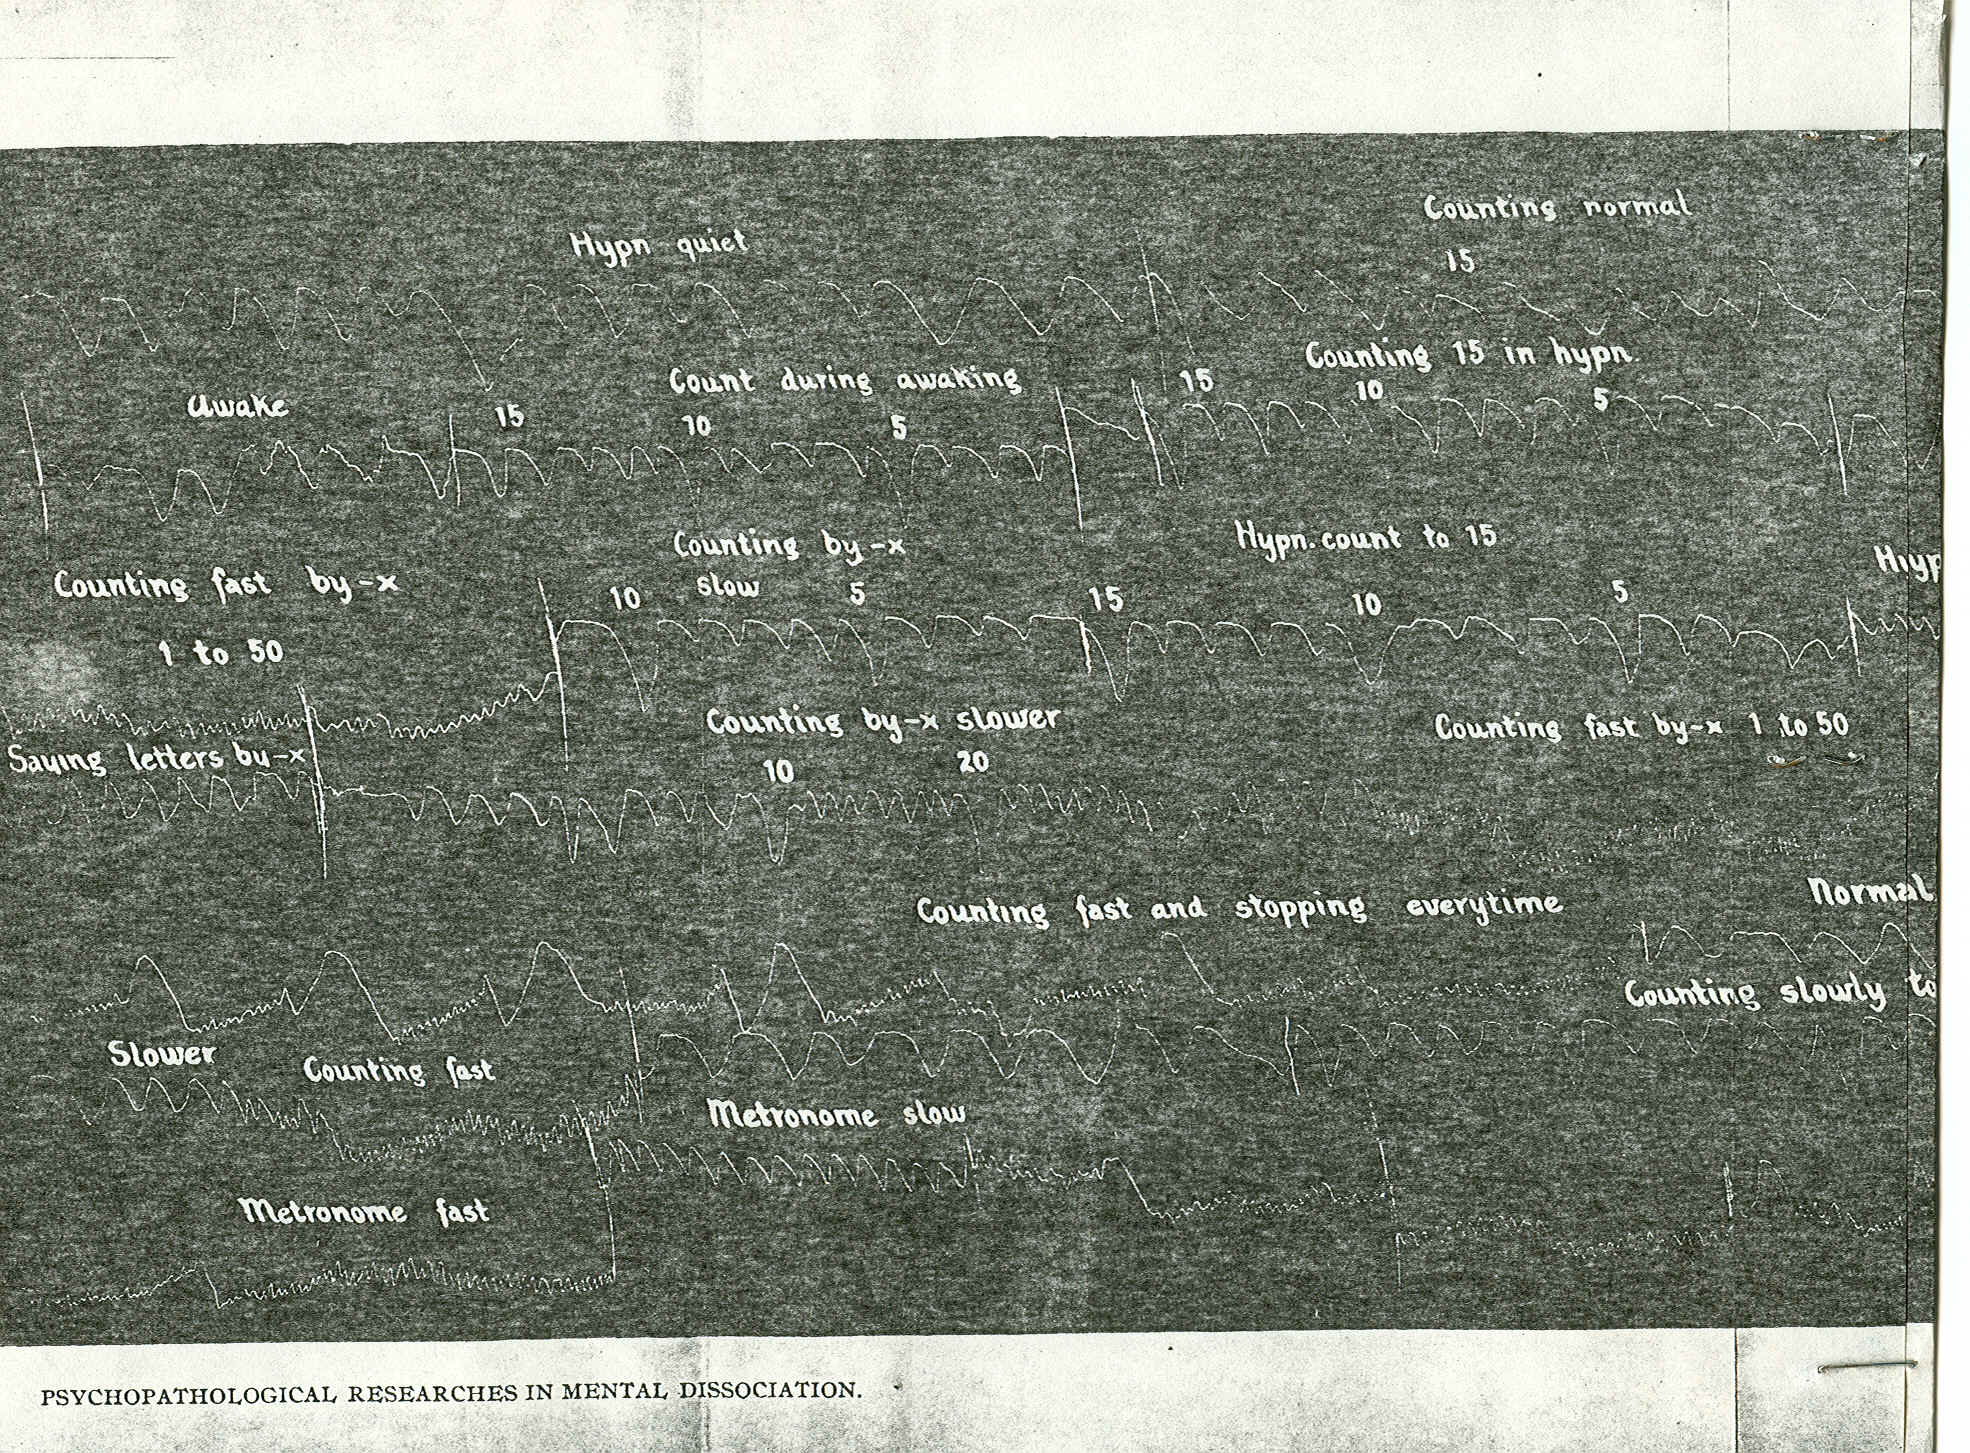 Counting normal
Hypn quiet
15
Counting 15 in hypn.
Count during awaking
15
10
5
Awake
15
10
5
Hypn. count to 15
Counting by-x
Counting fast by-x
slow
10
5
15
10
5
1 to 50
Counting by-x slower
Counting fast by-x 1 to 50
Saying letters by-x
10
20
Normal
Counting fast and stopping everytime
Counting slowly to
Slower
Counting fast
Metronome slow
Metronome fast
PSYCHOPATHOLOGICAL RESEARCHES IN MENTAL DISSOCIATION.